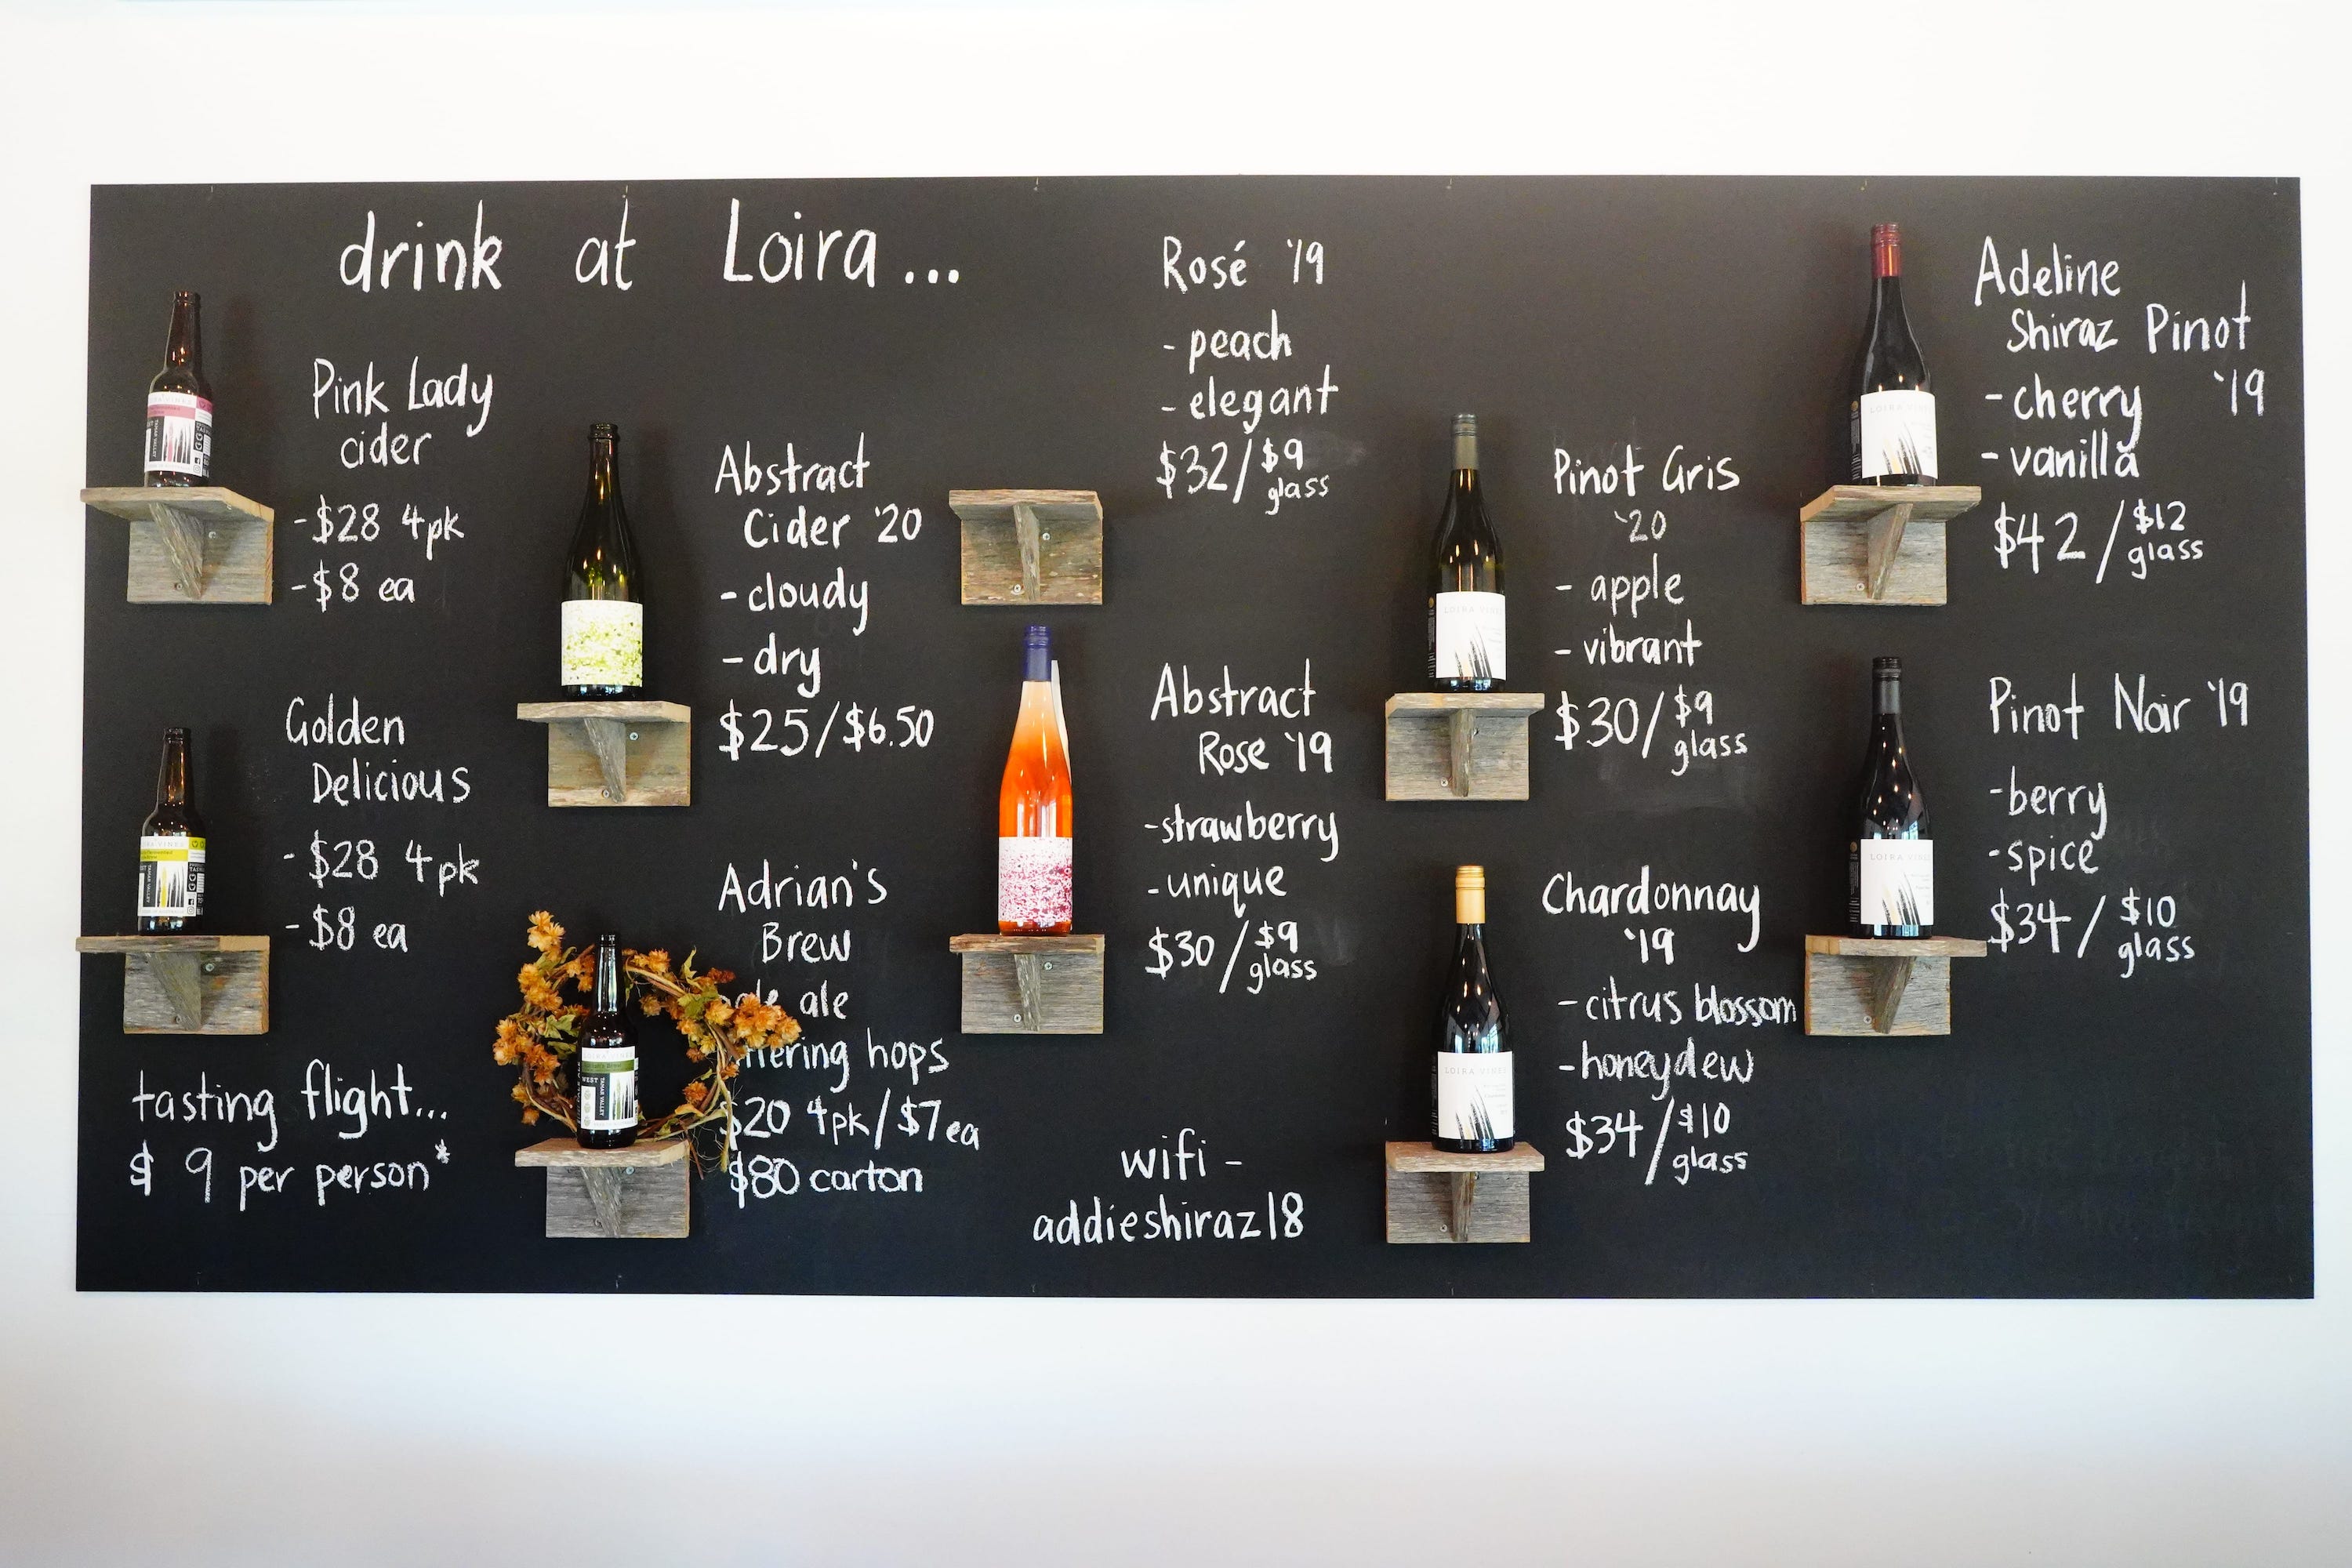 drink at Loira...
Pink Lady
cider
-$28 4pk
-$8 ea
Golden
Delicious
-$28 4pk
-$8 ea
tasting flight...
$9 per person*
Abstract
Cider '20
-cloudy
-dry
$25/$6.50
Adrian's
Brew
ale
hops
$20 4pk/$7ea
$80 carton
Rosé '19
-peach
-elegant
$32/$9
glass
Abstract
Rose '19
-strawberry
-unique
$30/$9
glass
wifi -
addieshiraz18
Pinot Gris
'20
-apple
-vibrant
$30/$9
glass
Chardonnay
'19
-citrus blossom
-honeydew
$34/$10
glass
Adeline
Shiraz Pinot
'19
-cherry
-vanilla
$42/$12
glass
Pinot Noir '19
-berry
-spice
$34/$10
glass
LOIRA VINES
TAMAR VALLEY